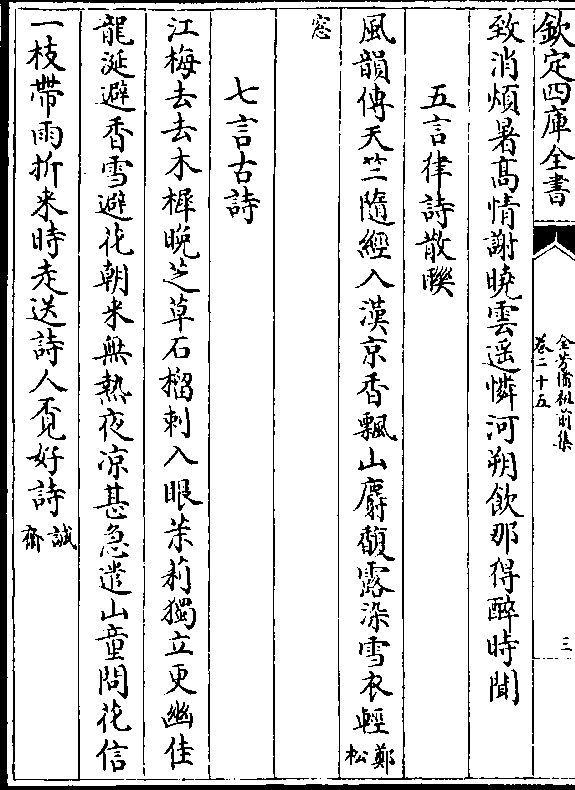 欽定四庫全書
全芳備祖前集
卷二十五
三
致消煩暑高情謝曉雲遥憐河朔飲那得醉時聞
五言律詩散聨
風韻傳天竺隨經入漢京香飄山麝馥露染雪衣輕鄭松
窓
七言古詩
江梅去去木樨晚芝草石榴刺入眼茉莉獨立更幽佳
龍涎避香雪避花朝来無熱夜凉甚急遣山童問花信
一枝帶雨折来時走送詩人覓好詩誠齋